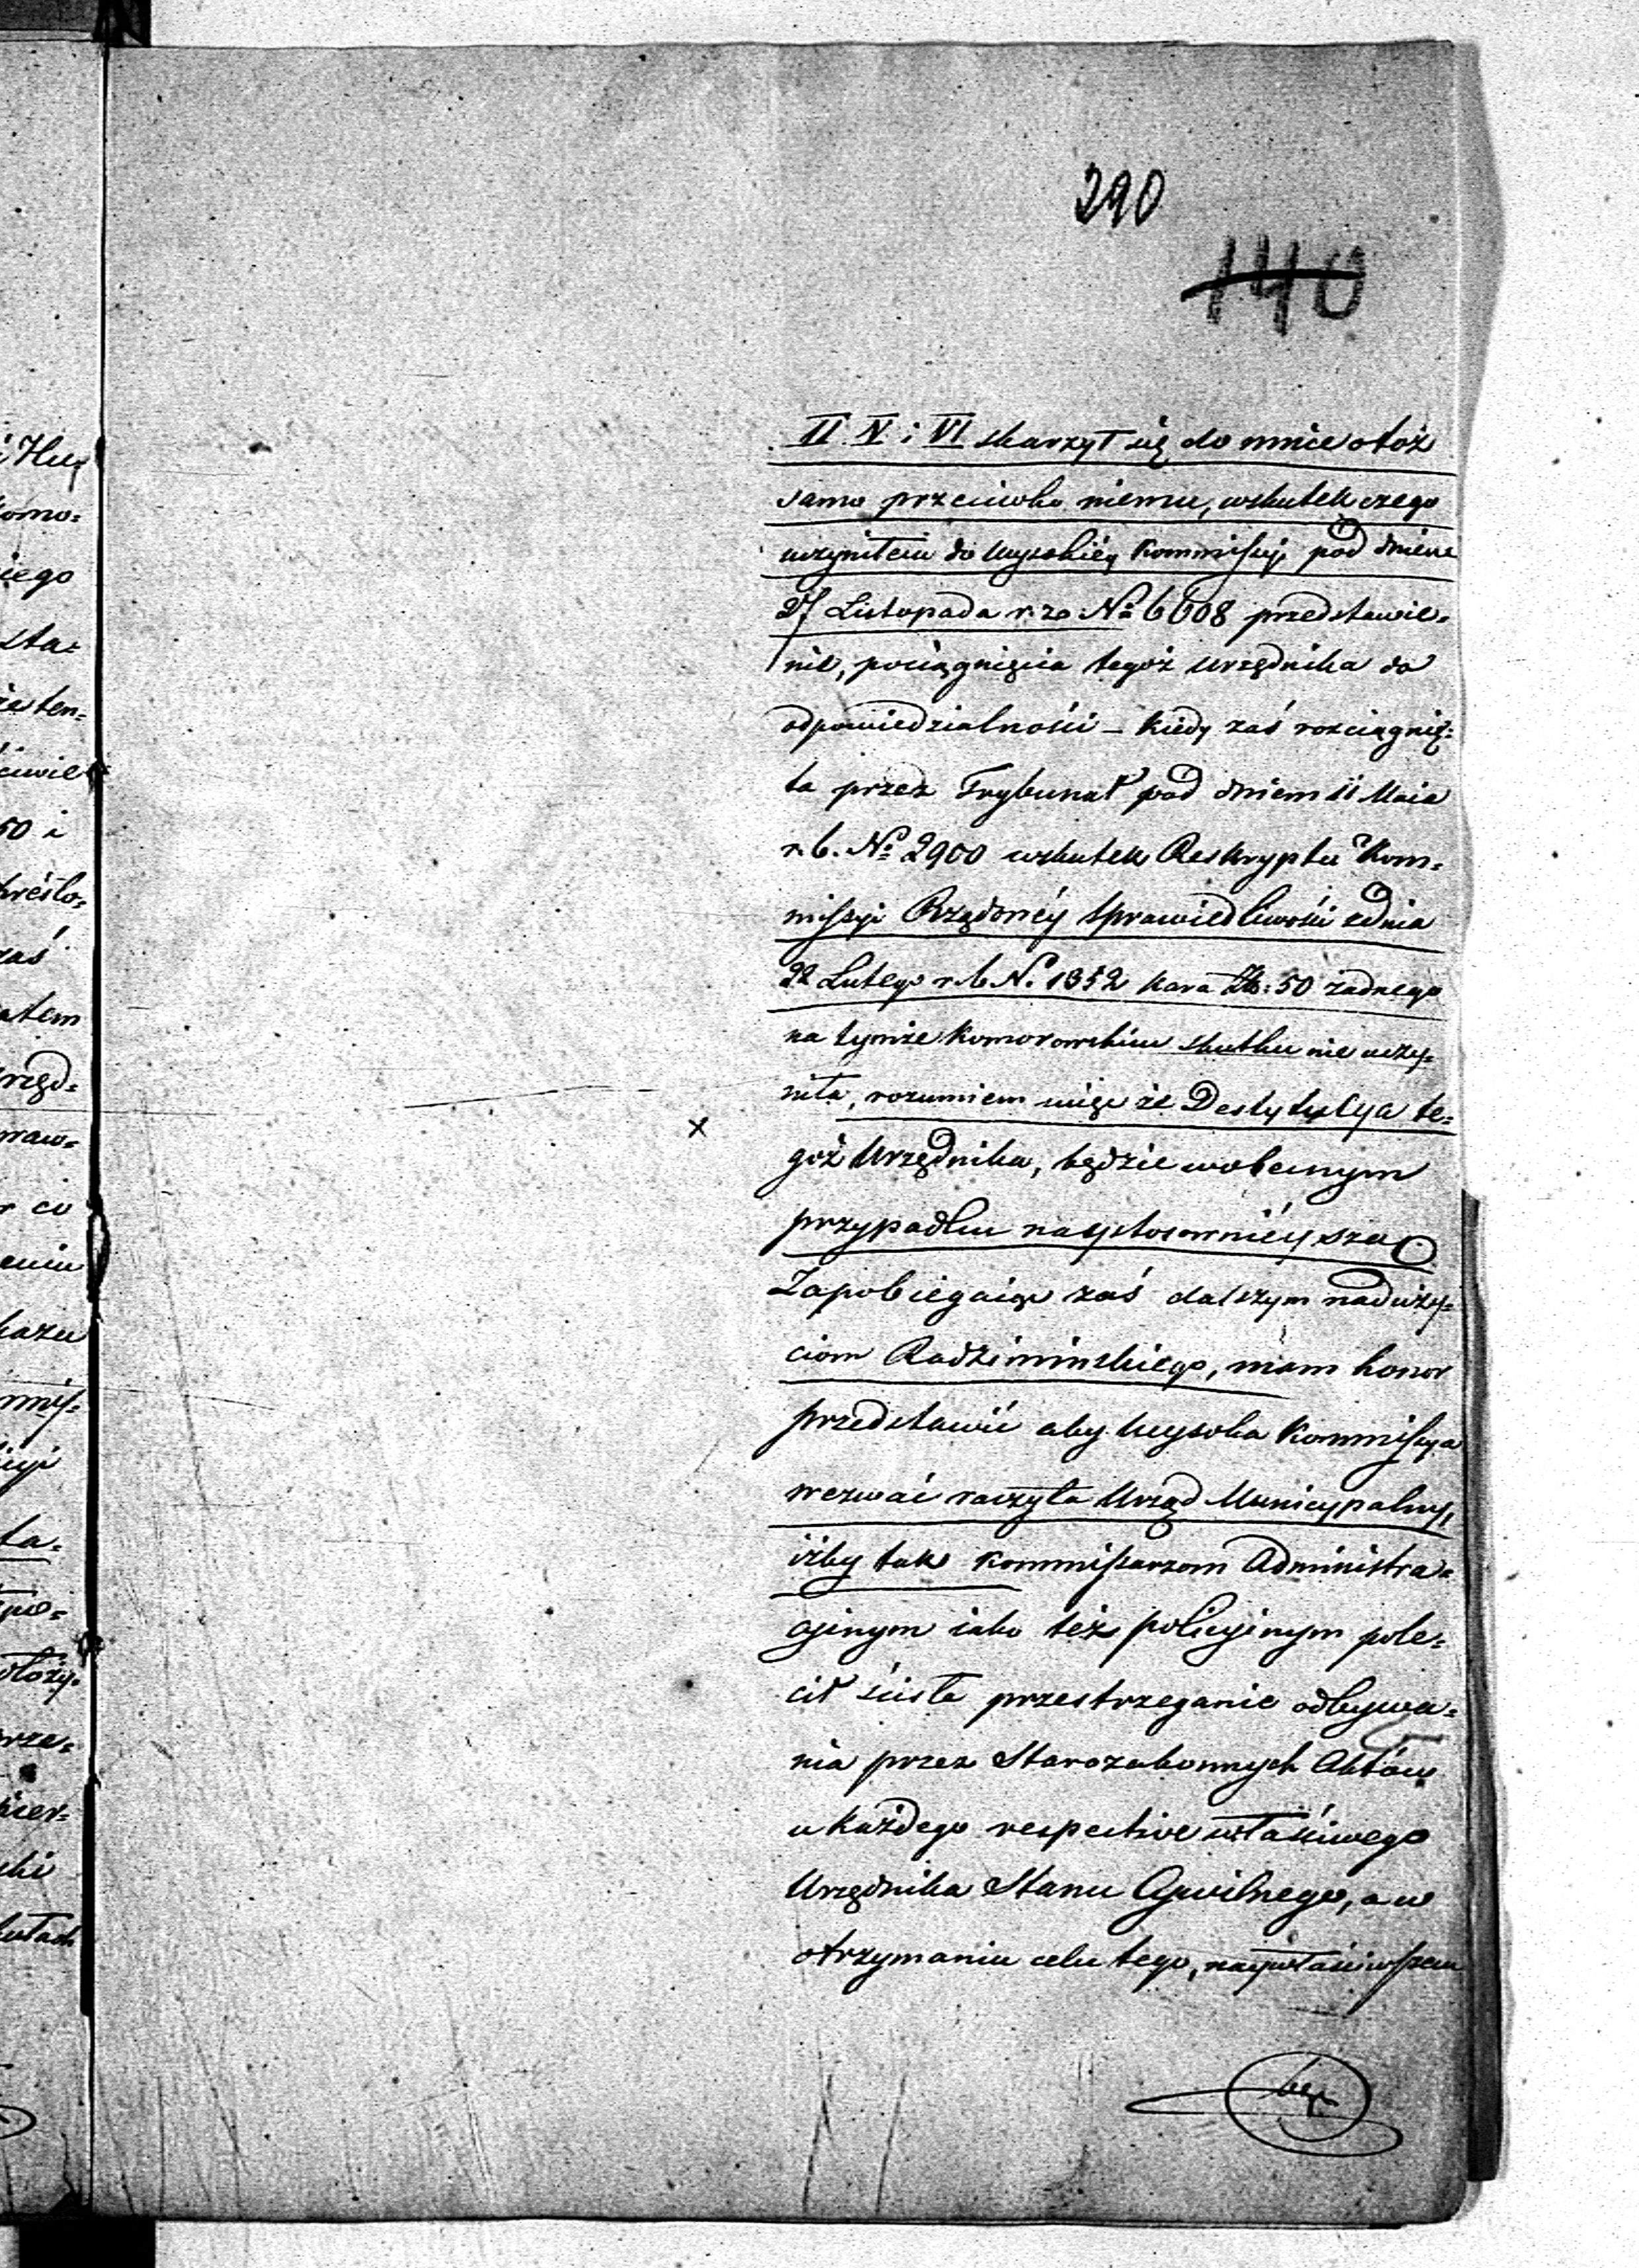 290
140
II. V i VI skarzył się do mnie otoż
samo przeciwko niemu, wskutek czego
uczyniłem do Wysokiéy Kommissyi pod dniem
27 Listopada r. z. No 6608 przedstawie=
nie, pociągnięcia tegoż Urzędnika do
odpowiedzialności – kiedy zaś rozciągnię=
ta przez Trybunał pod dniem 11 Maia
r. b. No 2900 wskutek Reskryptu Kom=
missyi Rządowéy Sprawiedliwości z dnia
22 Lutego r. b. N. 1352 kara Złp: 50 żadnego
na tymże Komorowskim skutku nie uczy=
niła, rozumiem więc że Destytucya te=
goż Urzędnika, będzie w obecnym
przypadku naystosownieysza
Zapobiegaiąc zaś dalszym naduży=
ciom Radzimińskiego, mam honor
przedstawić aby Wysoka Kommissya
wezwać raczyła Urząd Municypalny,
iżby tak Kommissarzom Administra=
cyinym iako też policyinym pole=
cił ścisłe przestrzeganie odbywa=
nia przez Starozakonnych Aktów
u każdego respective właściwego
Urzędnika Stanu Cywilnego, a w
otrzymaniu celu tego, naywłaściwszem